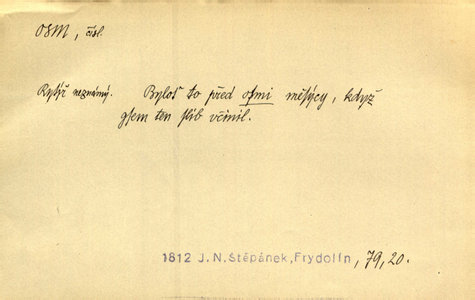 OSM, čísl.
Rytíř neznámý. Byloť to před osmi měsýcy, když
gsem ten slib včinil.
1812 J.N.Štěpánek,Frydolín, 79, 20.